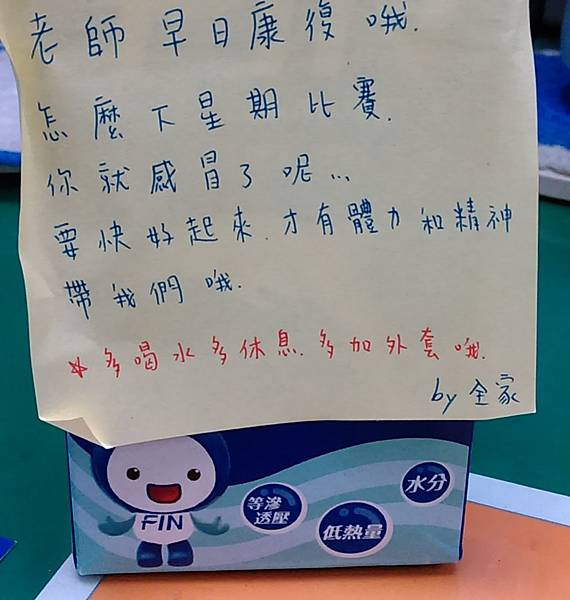 老師早日康復哦.
怎麼下星期比賽.
你就感冒了呢...
要快好起來.才有體力和精神
帶我們哦.
*多喝水多休息.多加外套哦.
by 全家
FIN
等滲
透壓
低熱量
水分